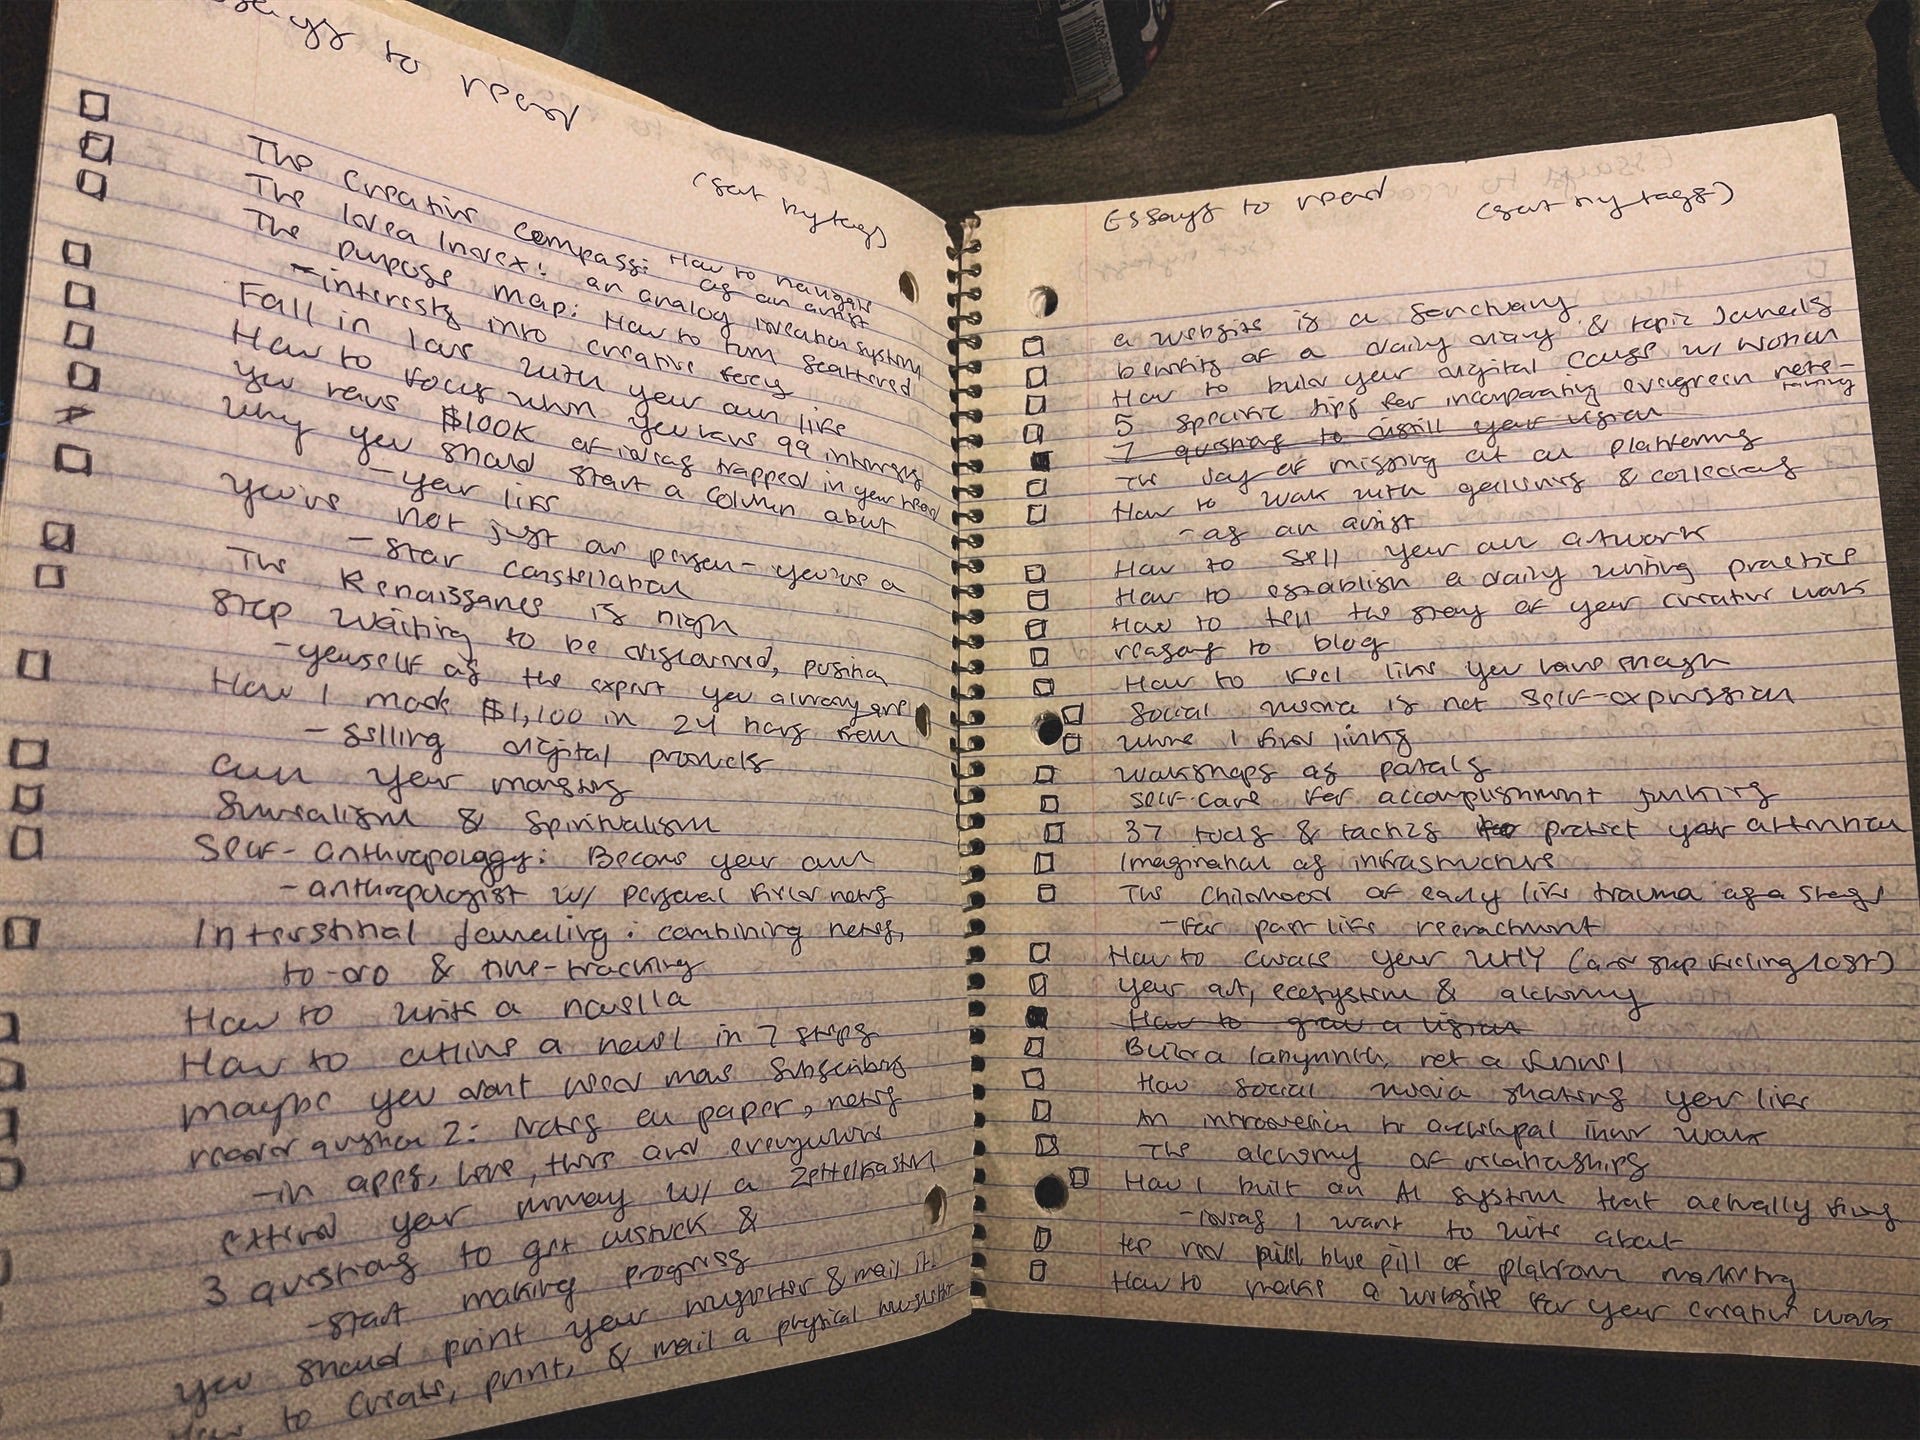 Essays to read
(sort by tags)
The Creative Compass: How to navigate
as an artist
The Idea Index: an analog ideation system
The purpose map: How to turn scattered
- interests into creative
Fall in love with your own life
How to focus when you have 99 interests
You have $100K of ideas trapped in your head
Why you should start a column about
- your life
You're not just one person - you're a
- star constellation
The Renaissance is nigh
Stop waiting to be discovered, position
- yourself as the expert you already are
How I made $1,100 in 24 hours from
- selling digital products
own your
Surrealism & Spiritualism
Self-anthropology: Become your own
- anthropologist w/ personal field notes
Interstitial Journaling: combining notes,
to-do & time-tracking
How to write a novella
How to outline a novel in 7 steps
maybe you don't need more subscribers
reader question 2: Notes on paper, notes
- in apps, here, there and everywhere
extend your memory w/ a Zettelkasten
3 questions to get unstuck &
- start making progress
you should print your newsletter & mail it!
How to create, print, & mail a physical newsletter
Essays to read
(sort by tags)
a website is a sanctuary
benefits of a daily diary & topic journals
How to build your digital house w/ notion
5 specific tips for incorporating evergreen note-
taking
7 questions to distill your vision
The joy of missing out on platforming
How to work with galleries & collectors
- as an artist
How to sell your own artwork
How to establish a daily writing practice
How to tell the story of your creative work
reasons to blog
How to feel like you have enough
Social media is not self-expression
where I find links
workshops as portals
self-care for accomplishment junkies
37 tools & tactics to protect your attention
Imagination as infrastructure
The childhood of early life trauma as a stage
- for past life reenactment
How to curate your WHY (and stop feeling lost)
your art, ecosystem & alchemy
How to grow a vision
Build a labyrinth, not a funnel
How social media shapes your life
An introduction to archetypal inner work
The alchemy of relationships
How I built an AI system that actually finds
- ideas I want to write about
the red pill blue pill of platform marketing
How to make a website for your creative work